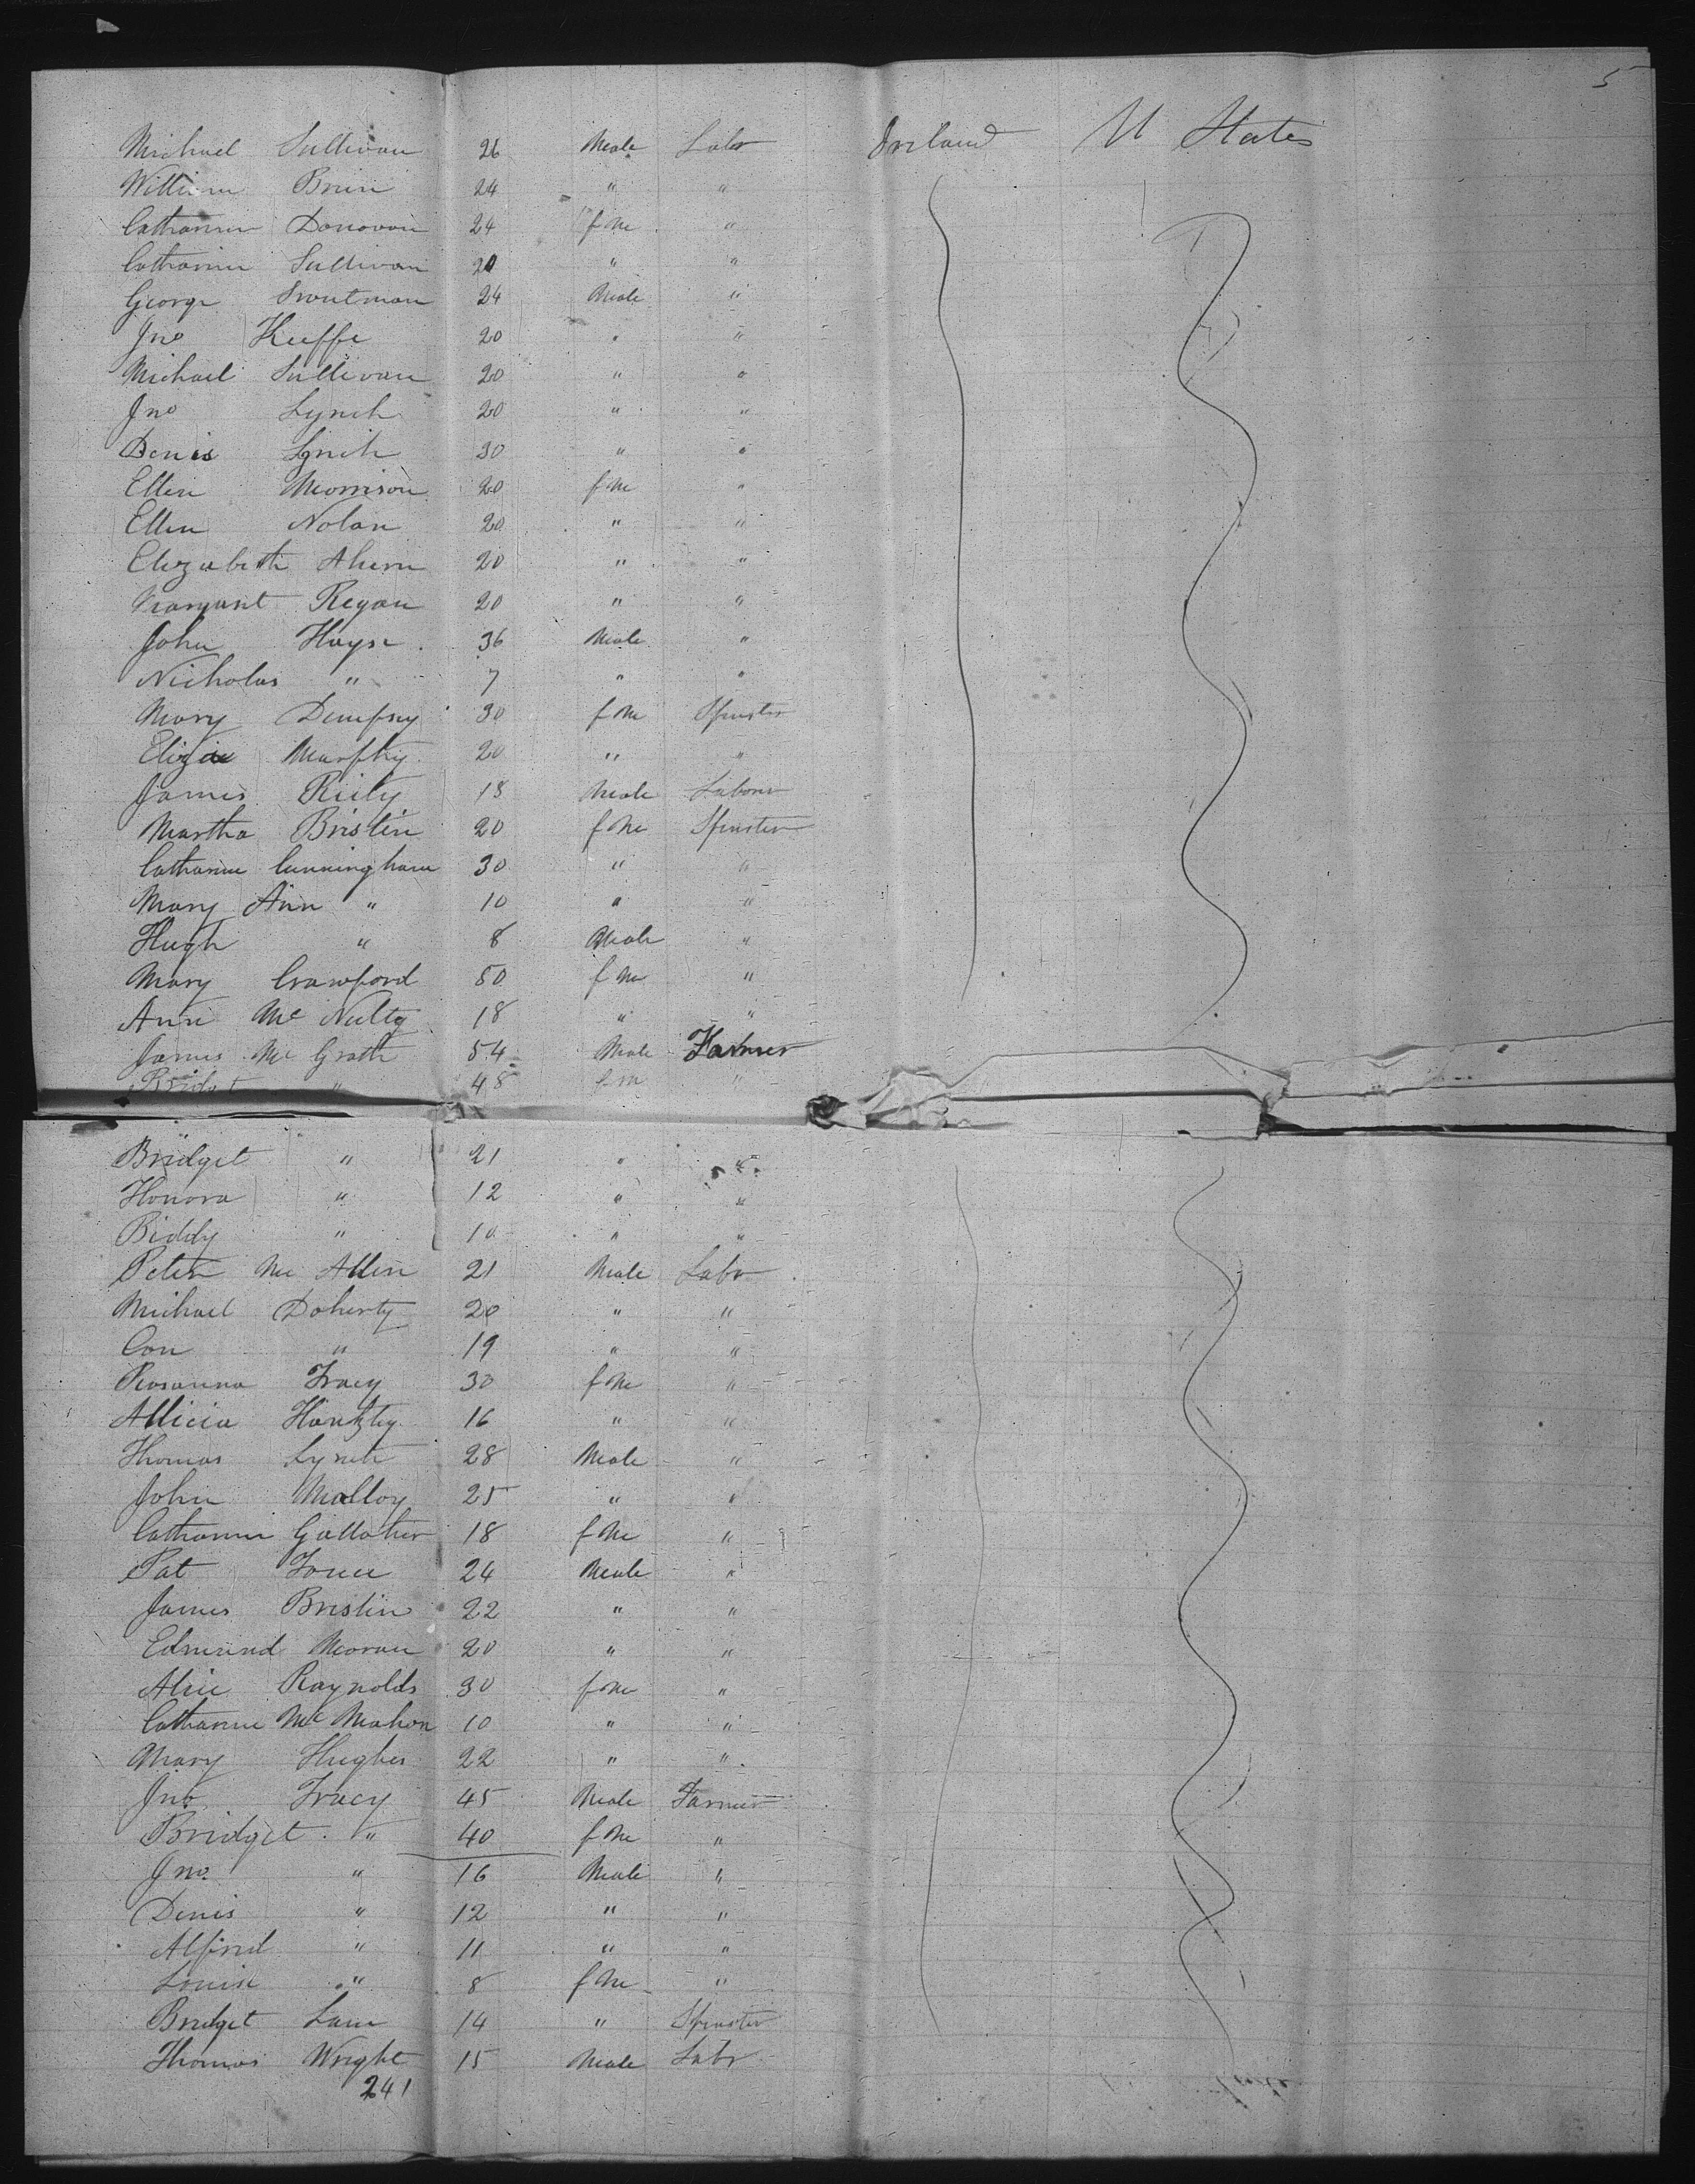 5
Michael Sullivan 26 Male Labr Ireland U States
William Brien 24 " "
Catharine Donovan 24 f Me "
Catharine Sullivan 20 " "
George 24 Male "
Jno Keeffe 20 " "
Michael Sullivan 20 " "
Jno Lynch 20 " "
Denis Lynch 30 " "
Ellen Morrison 20 f Me "
Ellen Nolan 20 " "
Elizabeth Ahern 20 " "
Margaret Regan 20 " "
John Hayse 36 Male "
Nicholas " 7 " "
Mary Dempsey 30 f Me Spinster
Eliza Murphy 20 " "
James Riely 18 Male Labour
Martha Brislin 20 f Me Spinster
Catharine Cunningham 30 " "
Mary Ann " 10 " "
Hugh " 8 Male "
Mary Crawford 50 f Me "
Ann Mc Nulty 18 " "
James Mc Grath 54 Male Farmer
Bridget " 48 f M "
Bridget " 21 " "
Honora " 12 " "
Biddy " 10 " "
Peter Mc Allen 21 Male Labr
Michael Doherty 20 " "
Con " 19 " "
Rosanna Tracy 30 f Me "
Allicia 16 " "
Thomas Lynch 28 Male "
John Malloy 25 " "
Catharine Gallaher 18 f Me "
Pat 24 Male "
James Brislin 22 " "
Edmund Moran 20 " "
Alice Raynolds 30 f Me "
Catharine Mc Mahon 10 " "
Mary Hughes 22 " "
Jno Tracy 45 Male Farmer
Bridget " 40 f Me "
Jno " 16 Male "
Denis " 12 " "
Alfred " 11 " "
Louise " 8 f Me "
Bridget Lane 14 " Spinster
Thomas Wright 15 Male Labr
241